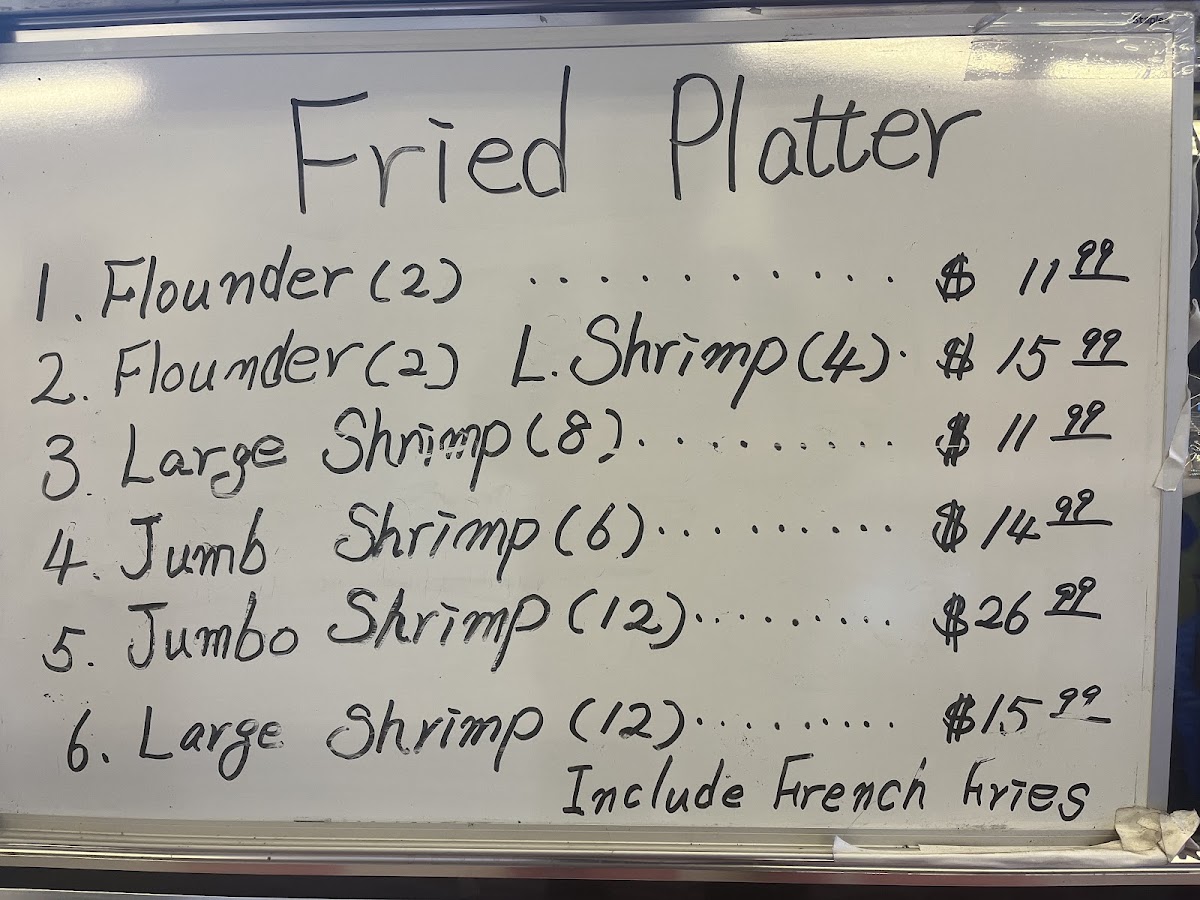 Staples
Fried Platter
1. Flounder (2) ............ $ 11 99
2. Flounder (2) L. Shrimp (4). $ 15 99
3. Large Shrimp (8).......... $ 11 99
4. Jumb Shrimp (6).......... $ 14 99
5. Jumbo Shrimp (12)......... $26 99
6. Large Shrimp (12).......... $15 99
Include French Fries